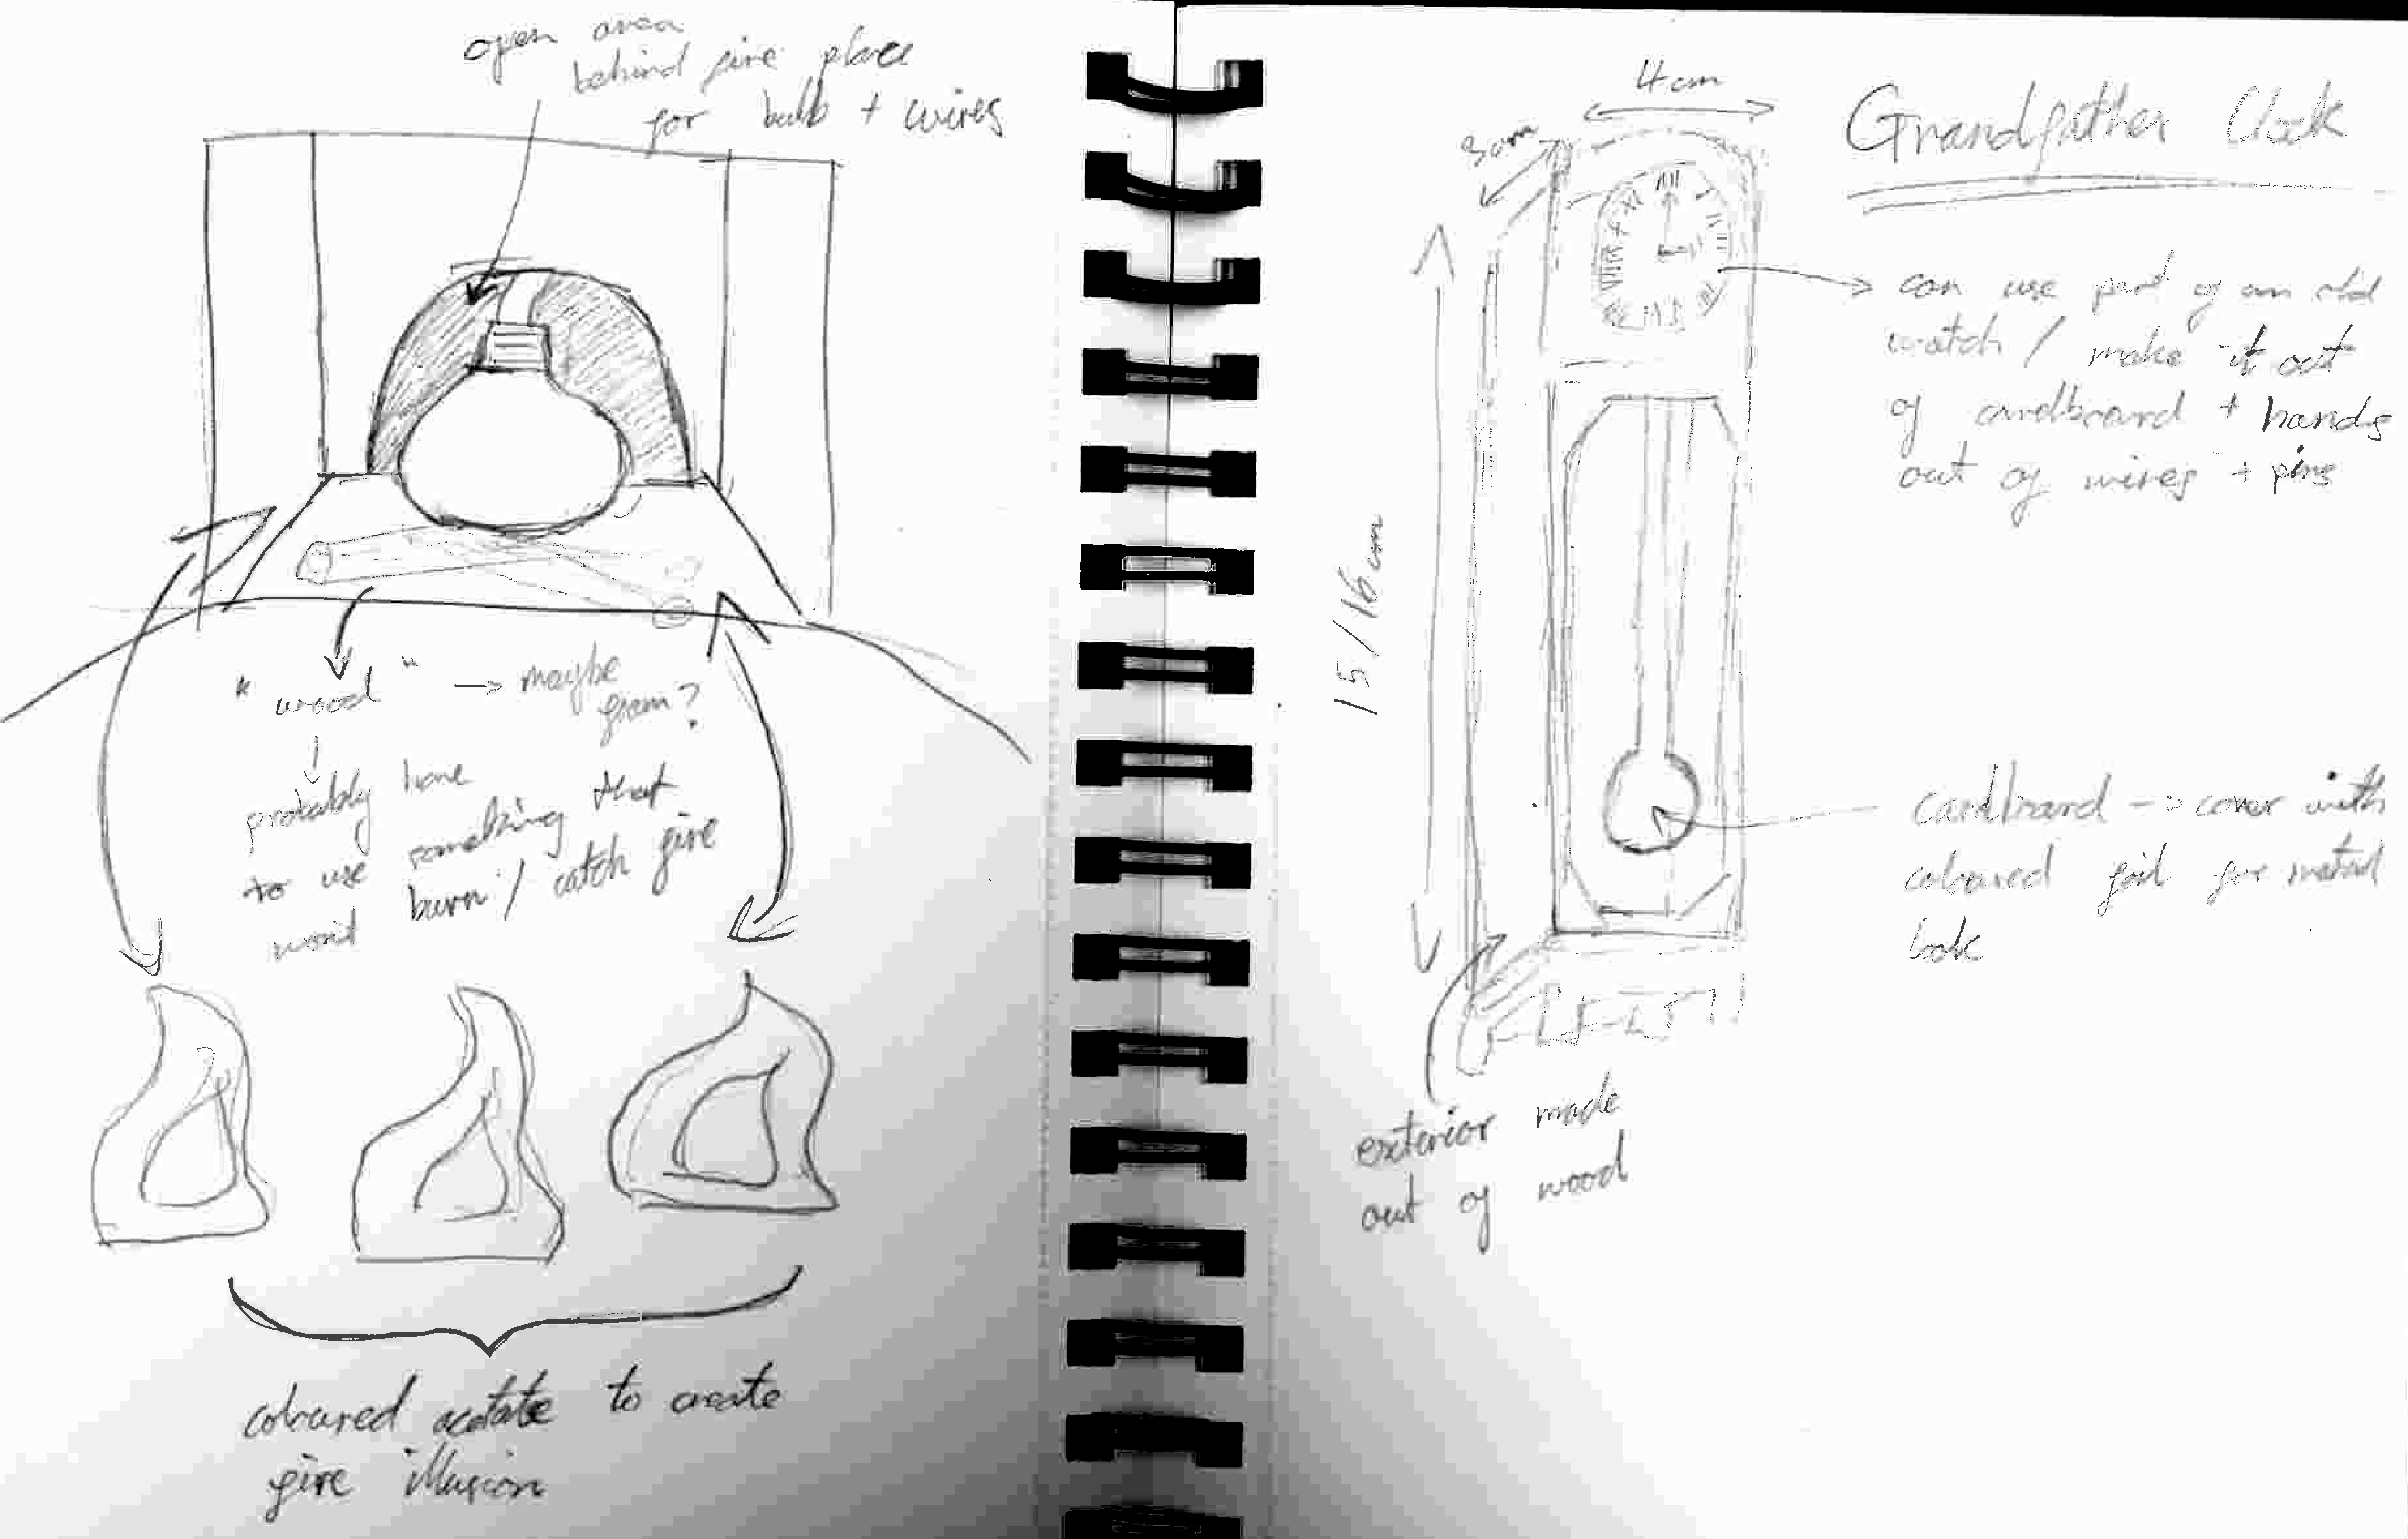 open area
behind fire place
for bulb + wires
"wood" -> maybe
foam?
probably have
to use something that
won't burn / catch fire
coloured acetate to create
fire illusion
Grandfather Clock
4cm
3cm
15/16cm
can use part of an old
watch / make it out
of cardboard + hands
out of wires + pins
cardboard -> cover with
coloured foil for metal
look
exterior made
out of wood